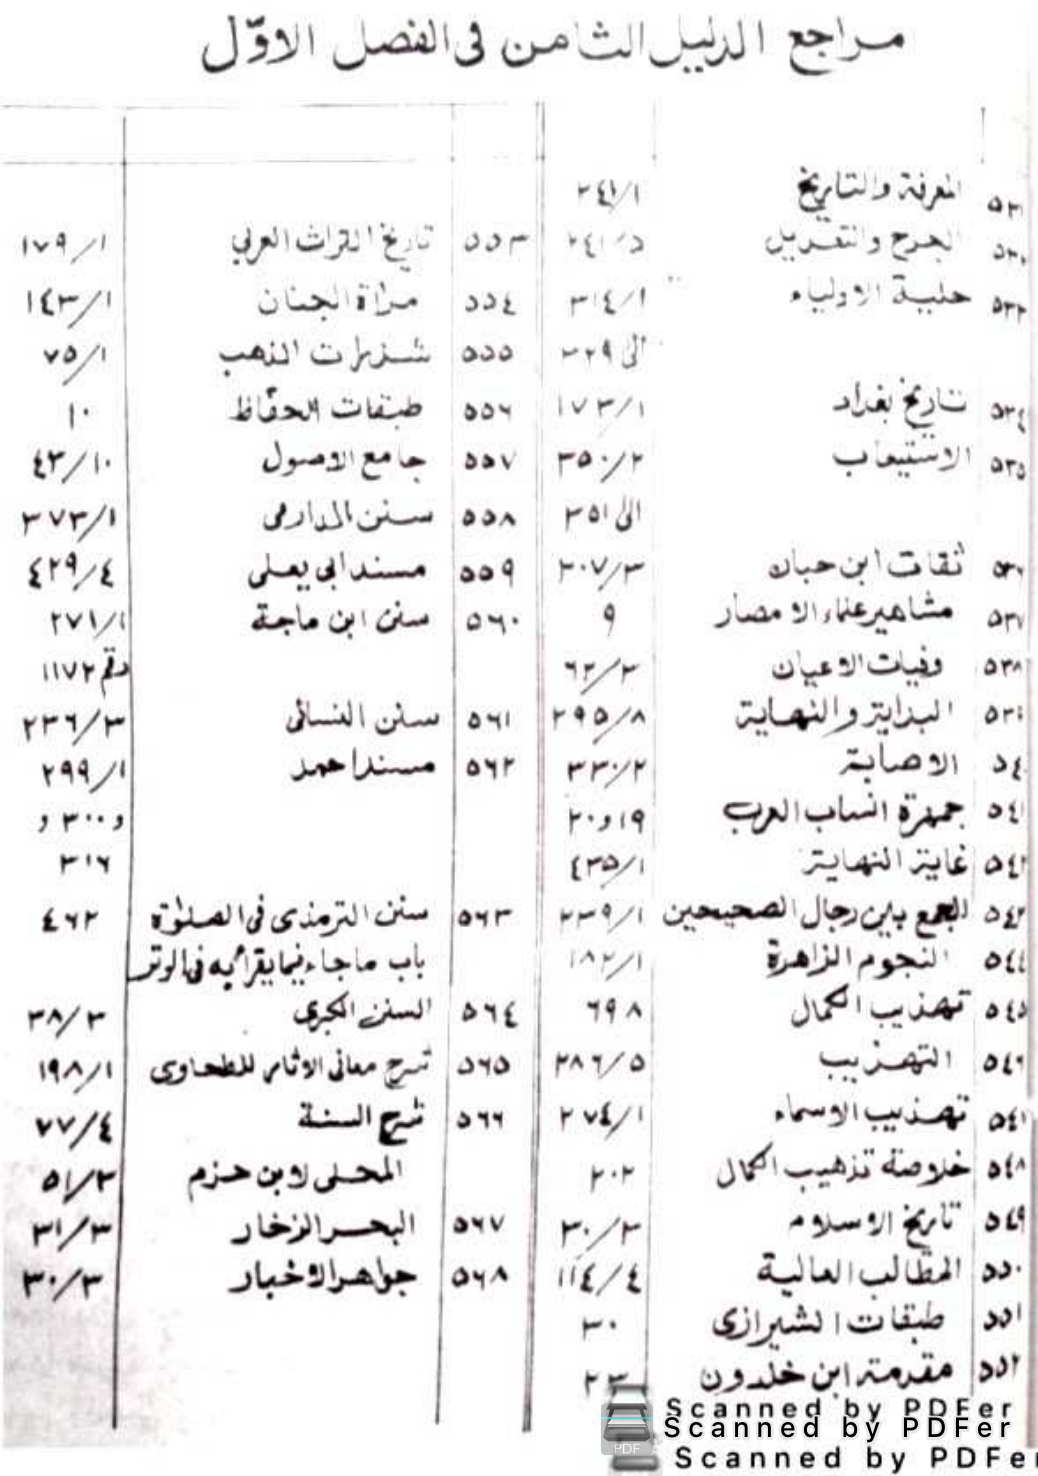 مراجع الدليل الثامن فى الفصل الاوّل
٥٣١ المعرفة والتاريخ ٢٤١/١
الجرح والتعديل ٢٤١/٥
حلية الاولياء ٣١٤/١
الى ٣٢٩
٥٣٤ تاريخ بغداد ١٧٣/١
٥٣٥ الاستيعاب ٣٥٠/٢
الى ٣٥١
ثقات ابن حبان ٢٠٧/٣
٥٣٧ مشاهير علماء الامصار ٩
٥٣٨ وفيات الاعيان ٦٢/٣
البداية والنهاية ٢٩٥/٨
الاصابة ٣٣٠/٢
٥٤١ جمهرة انساب العرب ١٩ و ٢٠
غاية النهاية ٤٣٥/١
٥٤٣ الجمع بين رجال الصحيحين ٢٣٩/١
٥٤٤ النجوم الزاهرة ١٨٢/١
٥٤٥ تهذيب الكمال ٦٩٨
٥٤٦ التهذيب ٢٨٦/٥
تهذيب الاسماء ٢٧٤/١
٥٤٨ خلاصة تذهيب الكمال ٢٠٢
٥٤٩ تاريخ الاسلام ٣٠/٣
٥٥٠ المطالب العالية ١١٤/٤
٥٥١ طبقات الشيرازى ٣٠
٥٥٢ مقدمة ابن خلدون ٢٣
٥٥٣ تاريخ التراث العربي ١٧٩/١
٥٥٤ مرآة الجنان ١٤٣/١
٥٥٥ شذرات الذهب ٧٥/١
٥٥٦ طبقات الحفّاظ ١٠
٥٥٧ جامع الاصول ٤٣/١٠
٥٥٨ سنن الدارمى ٣٧٣/١
٥٥٩ مسند ابي يعلى ٤٢٩/٤
٥٦٠ سنن ابن ماجة ٢٧١/١
رقم ١١٧٢
٥٦١ سنن النسائى ٢٣٦/٣
٥٦٢ مسند احمد ٢٩٩/١
و ٣٠٠ و
٣١٦
٥٦٣ سنن الترمذى فى الصلوٰة ٤٦٢
باب ماجاء فيما يقرأ به فى الوتر
٥٦٤ السنن الكبرى ٣٨/٣
٥٦٥ شرح معانى الاثار للطحاوى ١٩٨/١
٥٦٦ شرح السنة ٧٧/٤
المحلى لابن حزم ٥١/٢
٥٦٧ البحر الزخار ٣١/٣
٥٦٨ جواهر الاخبار ٣٠/٣
Scanned by PDFer
Scanned by PDFer
PDF
Scanned by PDFer